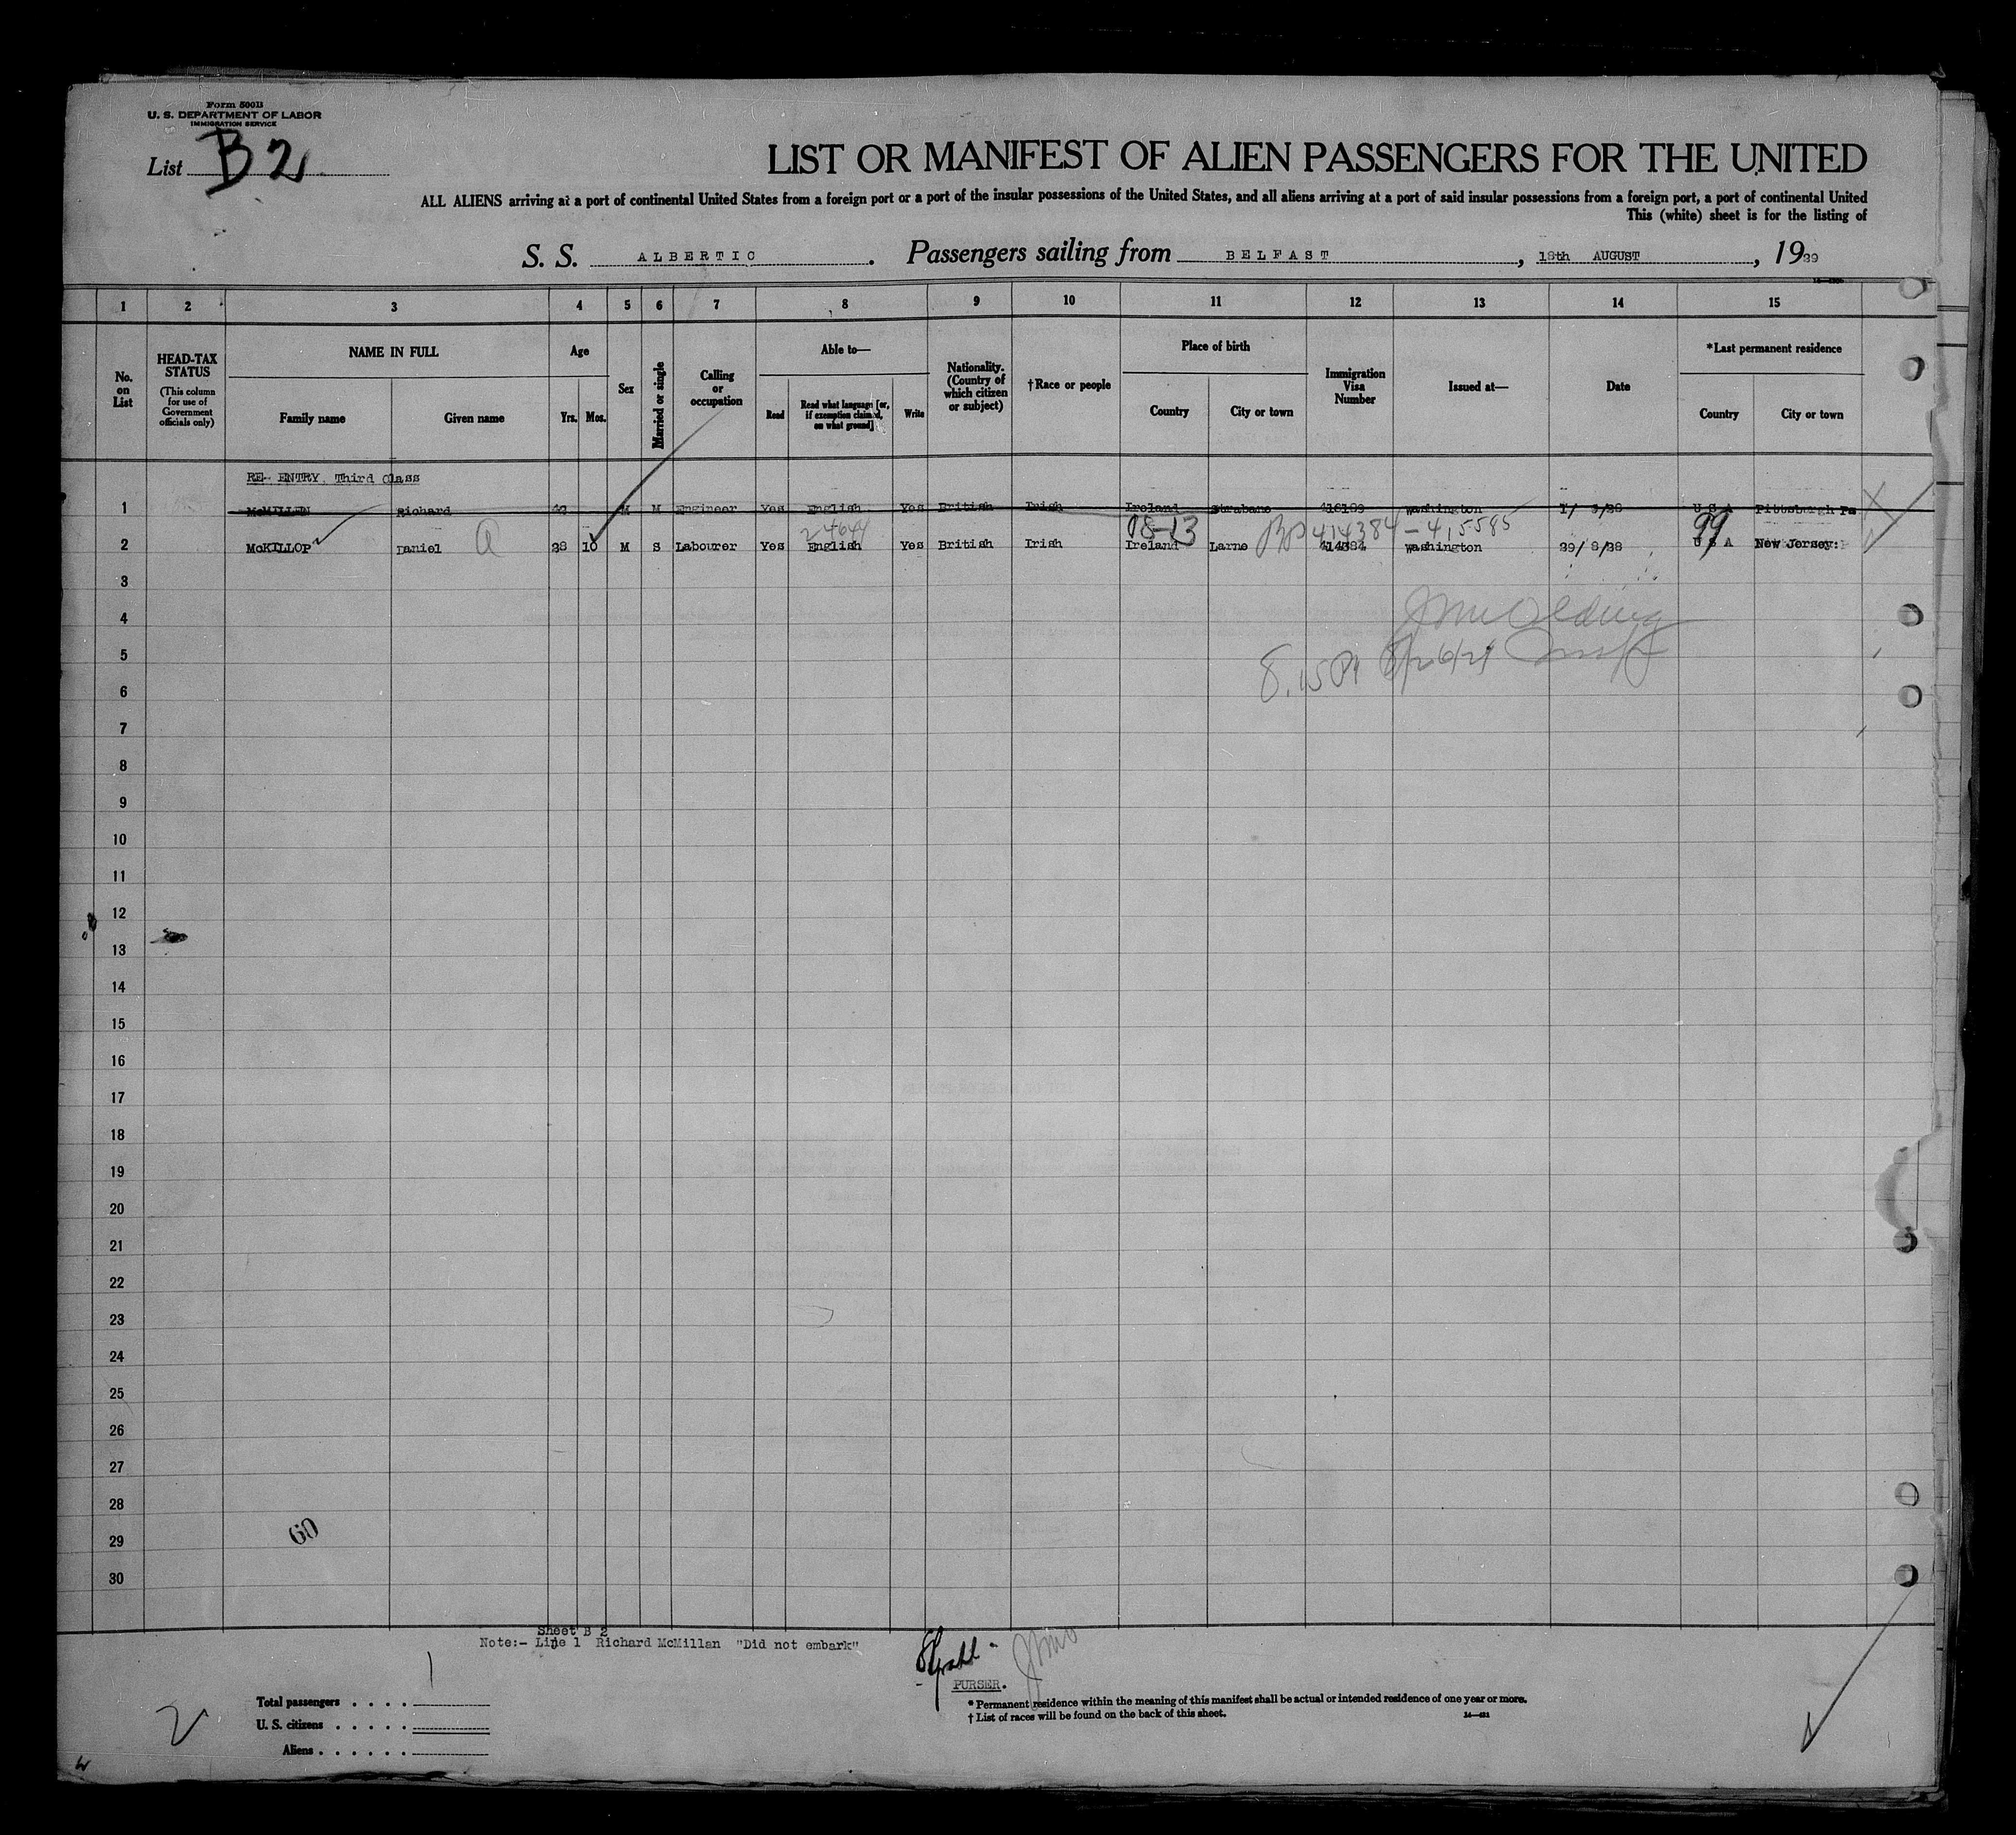 Form 500B
U. S. DEPARTMENT OF LABOR
IMMIGRATION SERVICE
List B2
LIST OR MANIFEST OF ALIEN PASSENGERS FOR THE UNITED
ALL ALIENS arriving at a port of continental United States from a foreign port or a port of the insular possessions of the United States, and all aliens arriving at a port of said insular possessions from a foreign port, a port of continental United
This (white) sheet is for the listing of
S. S. ALBERTIC. Passengers sailing from BELFAST, 18th AUGUST, 1929
1 2 3 4 5 6 7 8 9 10 11 12 13 14 15
No. on List
HEAD-TAX STATUS
(This column for use of Government officials only)
NAME IN FULL
Family name Given name
Age
Yrs. Mos.
Sex
Married or single
Calling or occupation
Able to—
Read Read what language [or, if exemption claimed, on what ground] Write
Nationality. (Country of which citizen or subject)
†Race or people
Place of birth
Country City or town
Immigration Visa Number
Issued at—
Date
*Last permanent residence
Country City or town
RE- ENTRY Third Class
1 McMILLEN Richard M M Engineer Yes English Yes British Irish Ireland Strabane Washington U S A Pittsburgh Pa
24644 414384 - 99
2 McKILLOP Daniel 28 10 M S Labourer Yes English Yes British Irish Ireland Larne 414384 Washington 29/ 8/28 U S A New Jersey:
3
4
5
6
7
8
9
10
11
12
13
14
15
16
17
18
19
20
21
22
23
24
25
26
27
28
29
30
60
Sheet B 2
Note:- Line 1 Richard McMillan "Did not embark"
PURSER.
Total passengers . . . . 1
U. S. citizens . . . . .
Aliens . . . . . .
2
* Permanent residence within the meaning of this manifest shall be actual or intended residence of one year or more.
† List of races will be found on the back of this sheet.